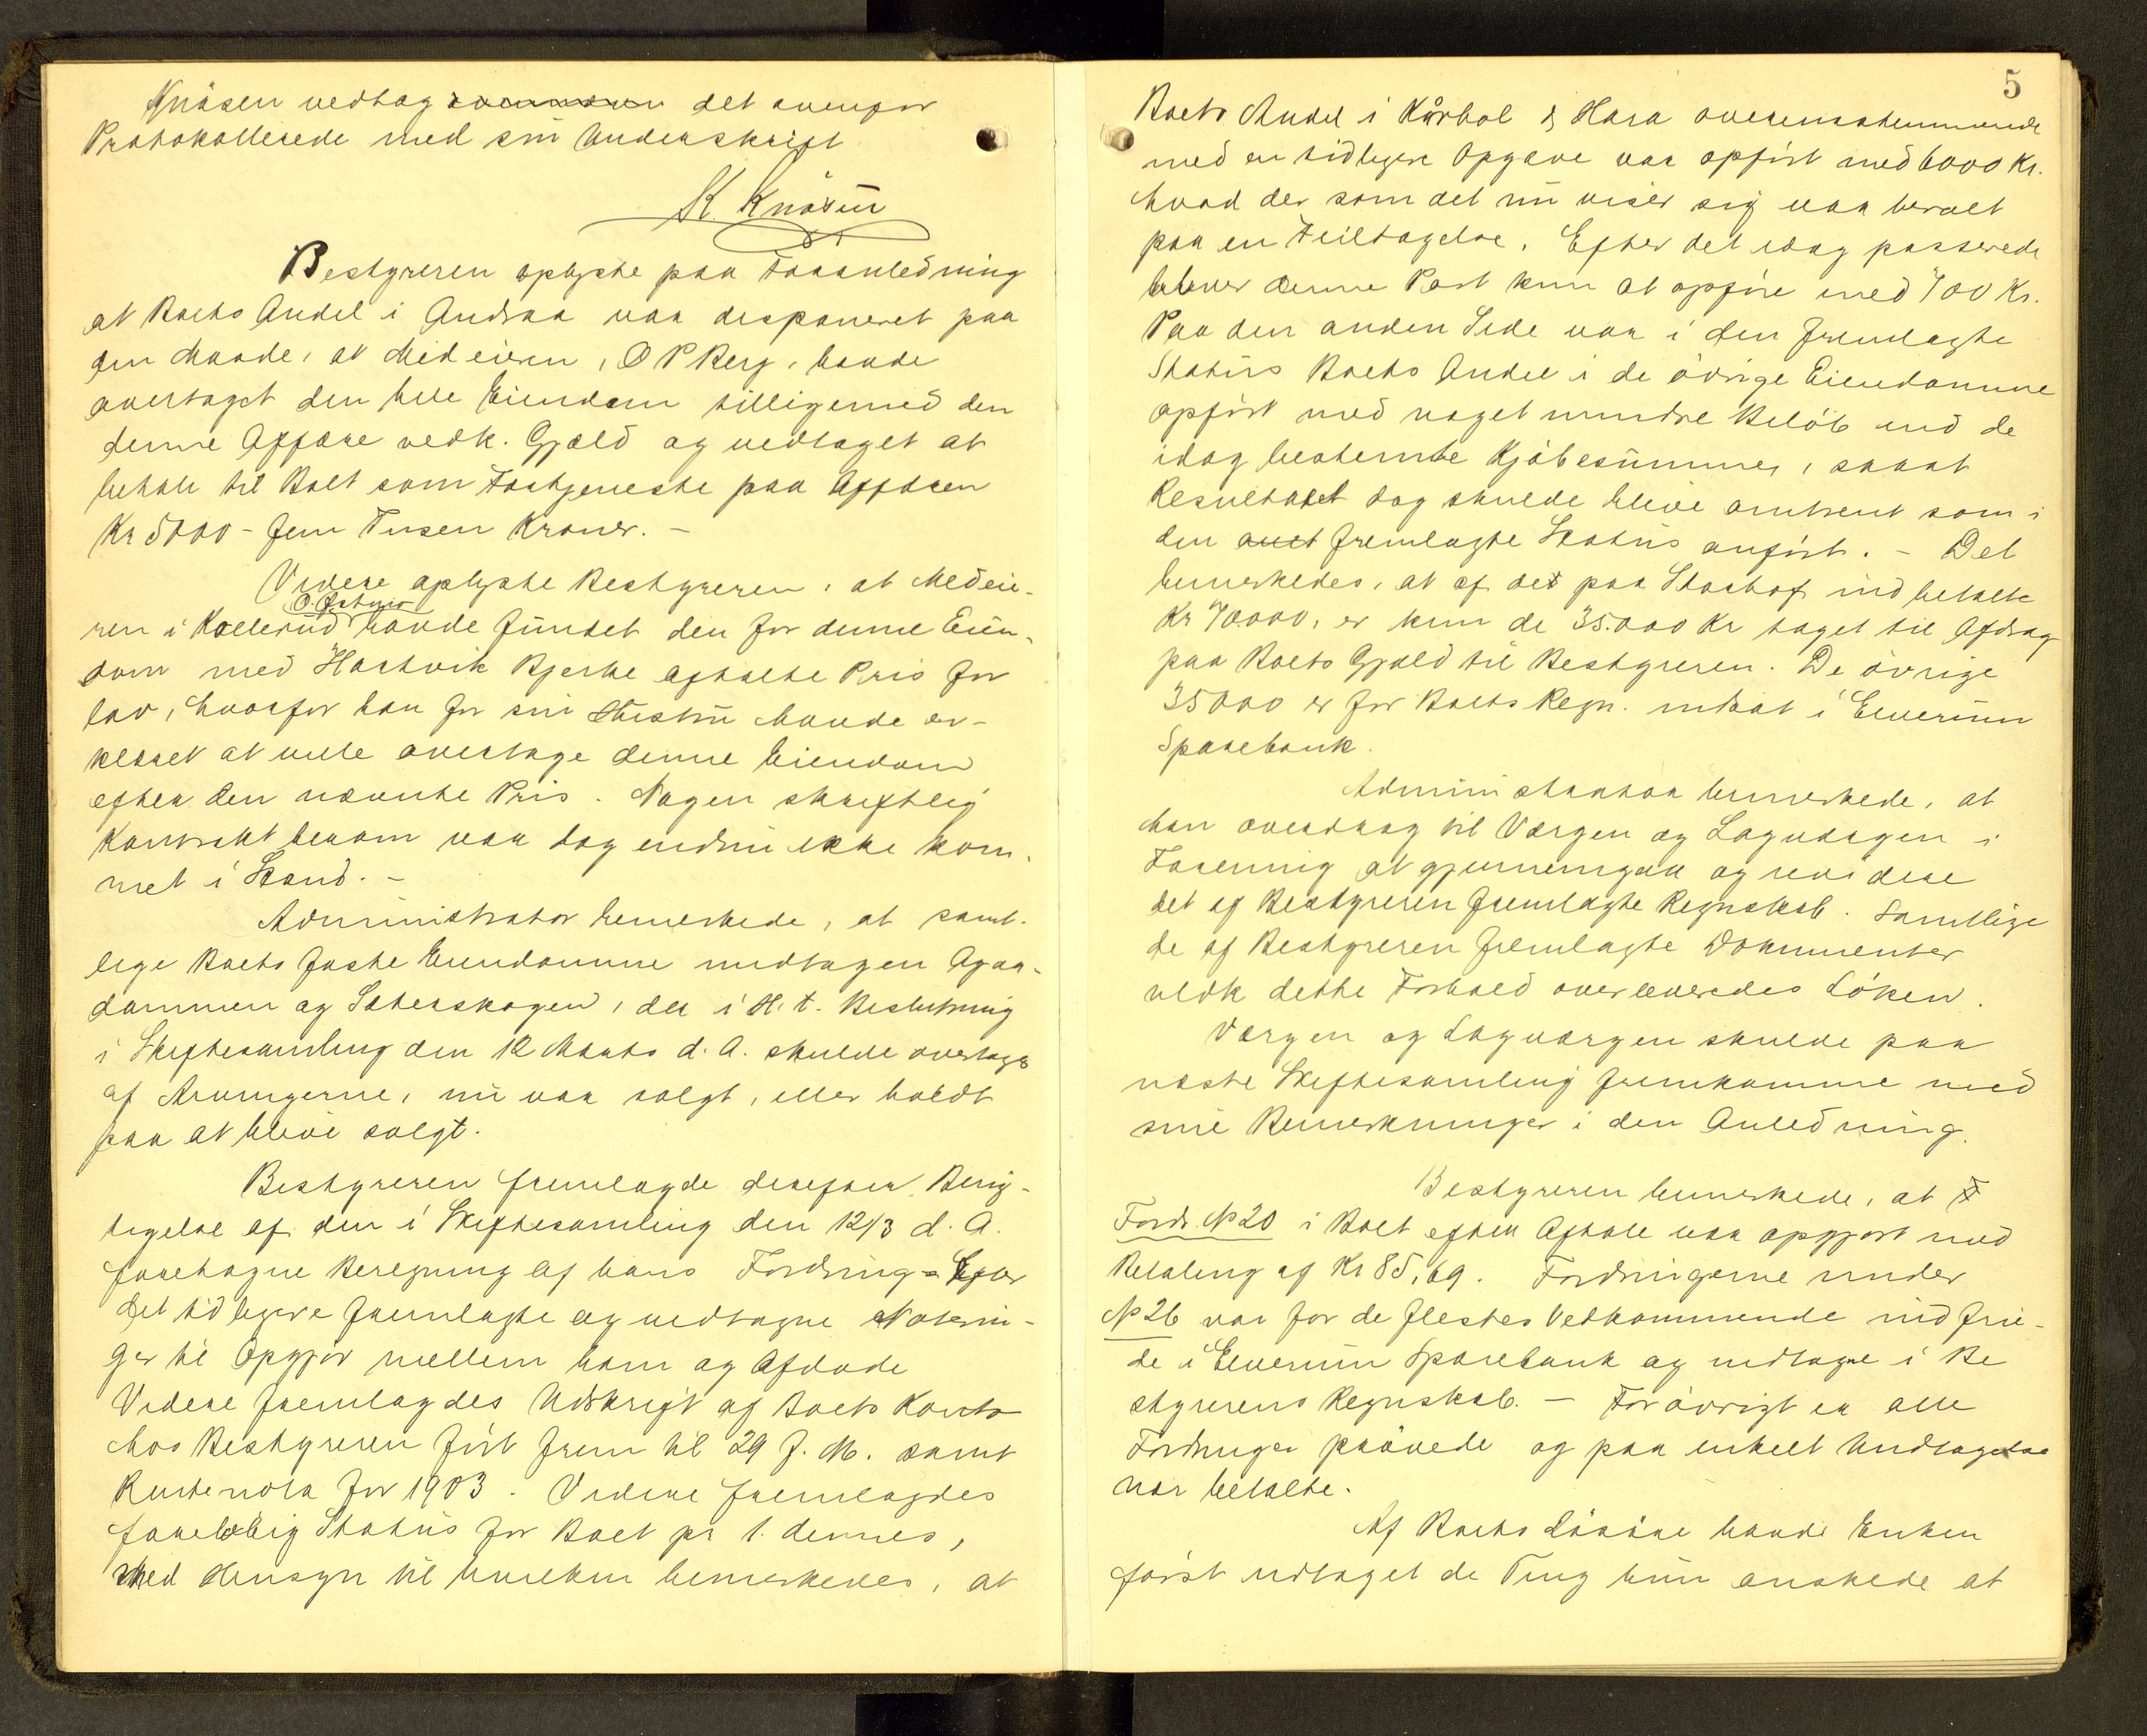 Knåsen vedtog det ovenfor
Protokollerede med sin Underskrift
K. Knåsen
Bestyreren oplyste paa Foranledning
at Boets Andel i Andraa var disponeret paa
den Maade, at Medeieren, O P Berg, havde
overtaget den hele Eiendom tilligemed den
denne Affære vedk. Gjæld og vedtaget at
betale til Boet som Fortjeneste paa Affæren
Kr 5000 - fem Tusen Kroner. -
Videre oplyste Bestyreren, at Medeie-
ren i Kollerud havde fundet den for denne Eien-
dom med Hartvik Bjerke aftalte Pris for
lav, hvorfor han for sin Hustru havde er-
klæret at ville overtage denne Eiendom
efter den nævnte Pris. Nogen skriftlig
Kontrakt herom var dog endnu ikke kom-
met i Stand. -
Administrator bemerkede, at samt-
lige Boets faste Eiendomme undtagen Agaa-
dammen og Sæterskogen, der i H. t. Beslutning
i Skiftesamling den 12 Marts d. A. skulde overtages
af Arvingerne, nu var solgt, eller holdt
paa at blive solgt.
Bestyreren fremlagde derefter Berig-
tigelse af den i Skiftesamling den 12/3 d. A.
foretagne Beregning af hans Fordring - Efter
det tidligere fremlagte og vedtagne Noterin-
ger til Opgjør mellem ham og Afdøde
Videre fremlagdes Udskrift af Boets Konto
hos Bestyreren ført frem til 29 f. M. samt
Rentenota for 1903. Videre fremlagdes
foreløbig Status for Boet pr 1. dennes,
med Hensyn til hvilken bemerkedes, at
5
Boets Andel i Kårbøl & Hara overensstemmende
med en tidligere Opgave var opført med 6000 Kr.
hvad der som det nu viser sig var beroet
paa en Feiltagelse. Efter det idag passerede
bliver denne Post kun at opføre med 700 Kr.
Paa den anden Side var i den fremlagte
Status Boets Andel i de øvrige Eiendomme
opført med noget mindre Beløb end de
idag bestemte Kjøbesummer, saaat
Resultatet dog skulde blive omtrent som i
den fremlagte Status anført. - Det
bemerkedes, at af det paa Stashof indbetalte
Kr 70.000, er kun de 35.000 Kr taget til Afdrag
paa Boets Gjæld til Bestyreren. De øvrige
35000 er for Boets Regn. indsat i Elverum
Sparebank.
Administrator bemerkede, at
han overdrog til Værgen og Lagværgen i
Forening at gjennemgaa og revidere
det af Bestyreren fremlagte Regnskab. Samtlige
de af Bestyreren fremlagte Dokumenter
vedk dette Forhold overleveredes Løken.
Værgen og Lagværgen skulde paa
næste Skiftesamling fremkomme med
sine Bemerkninger i den Anledning.
Bestyreren bemerkede, at
Fordr. № 20 i Boet efter Aftale var opgjort med
Betaling af Kr 85,69. Fordringerne under
№ 26 var for de flestes Vedkommende indfrie-
de i Elverum Sparebank og indtagne i Be
styrerens Regnskab. - Forøvrigt er alle
Fordringer prøvede og paa enkelt Undtagelse
nær betalte.
Af Boets Løsøre havde Enken
først udtaget de Ting hun ønskede at